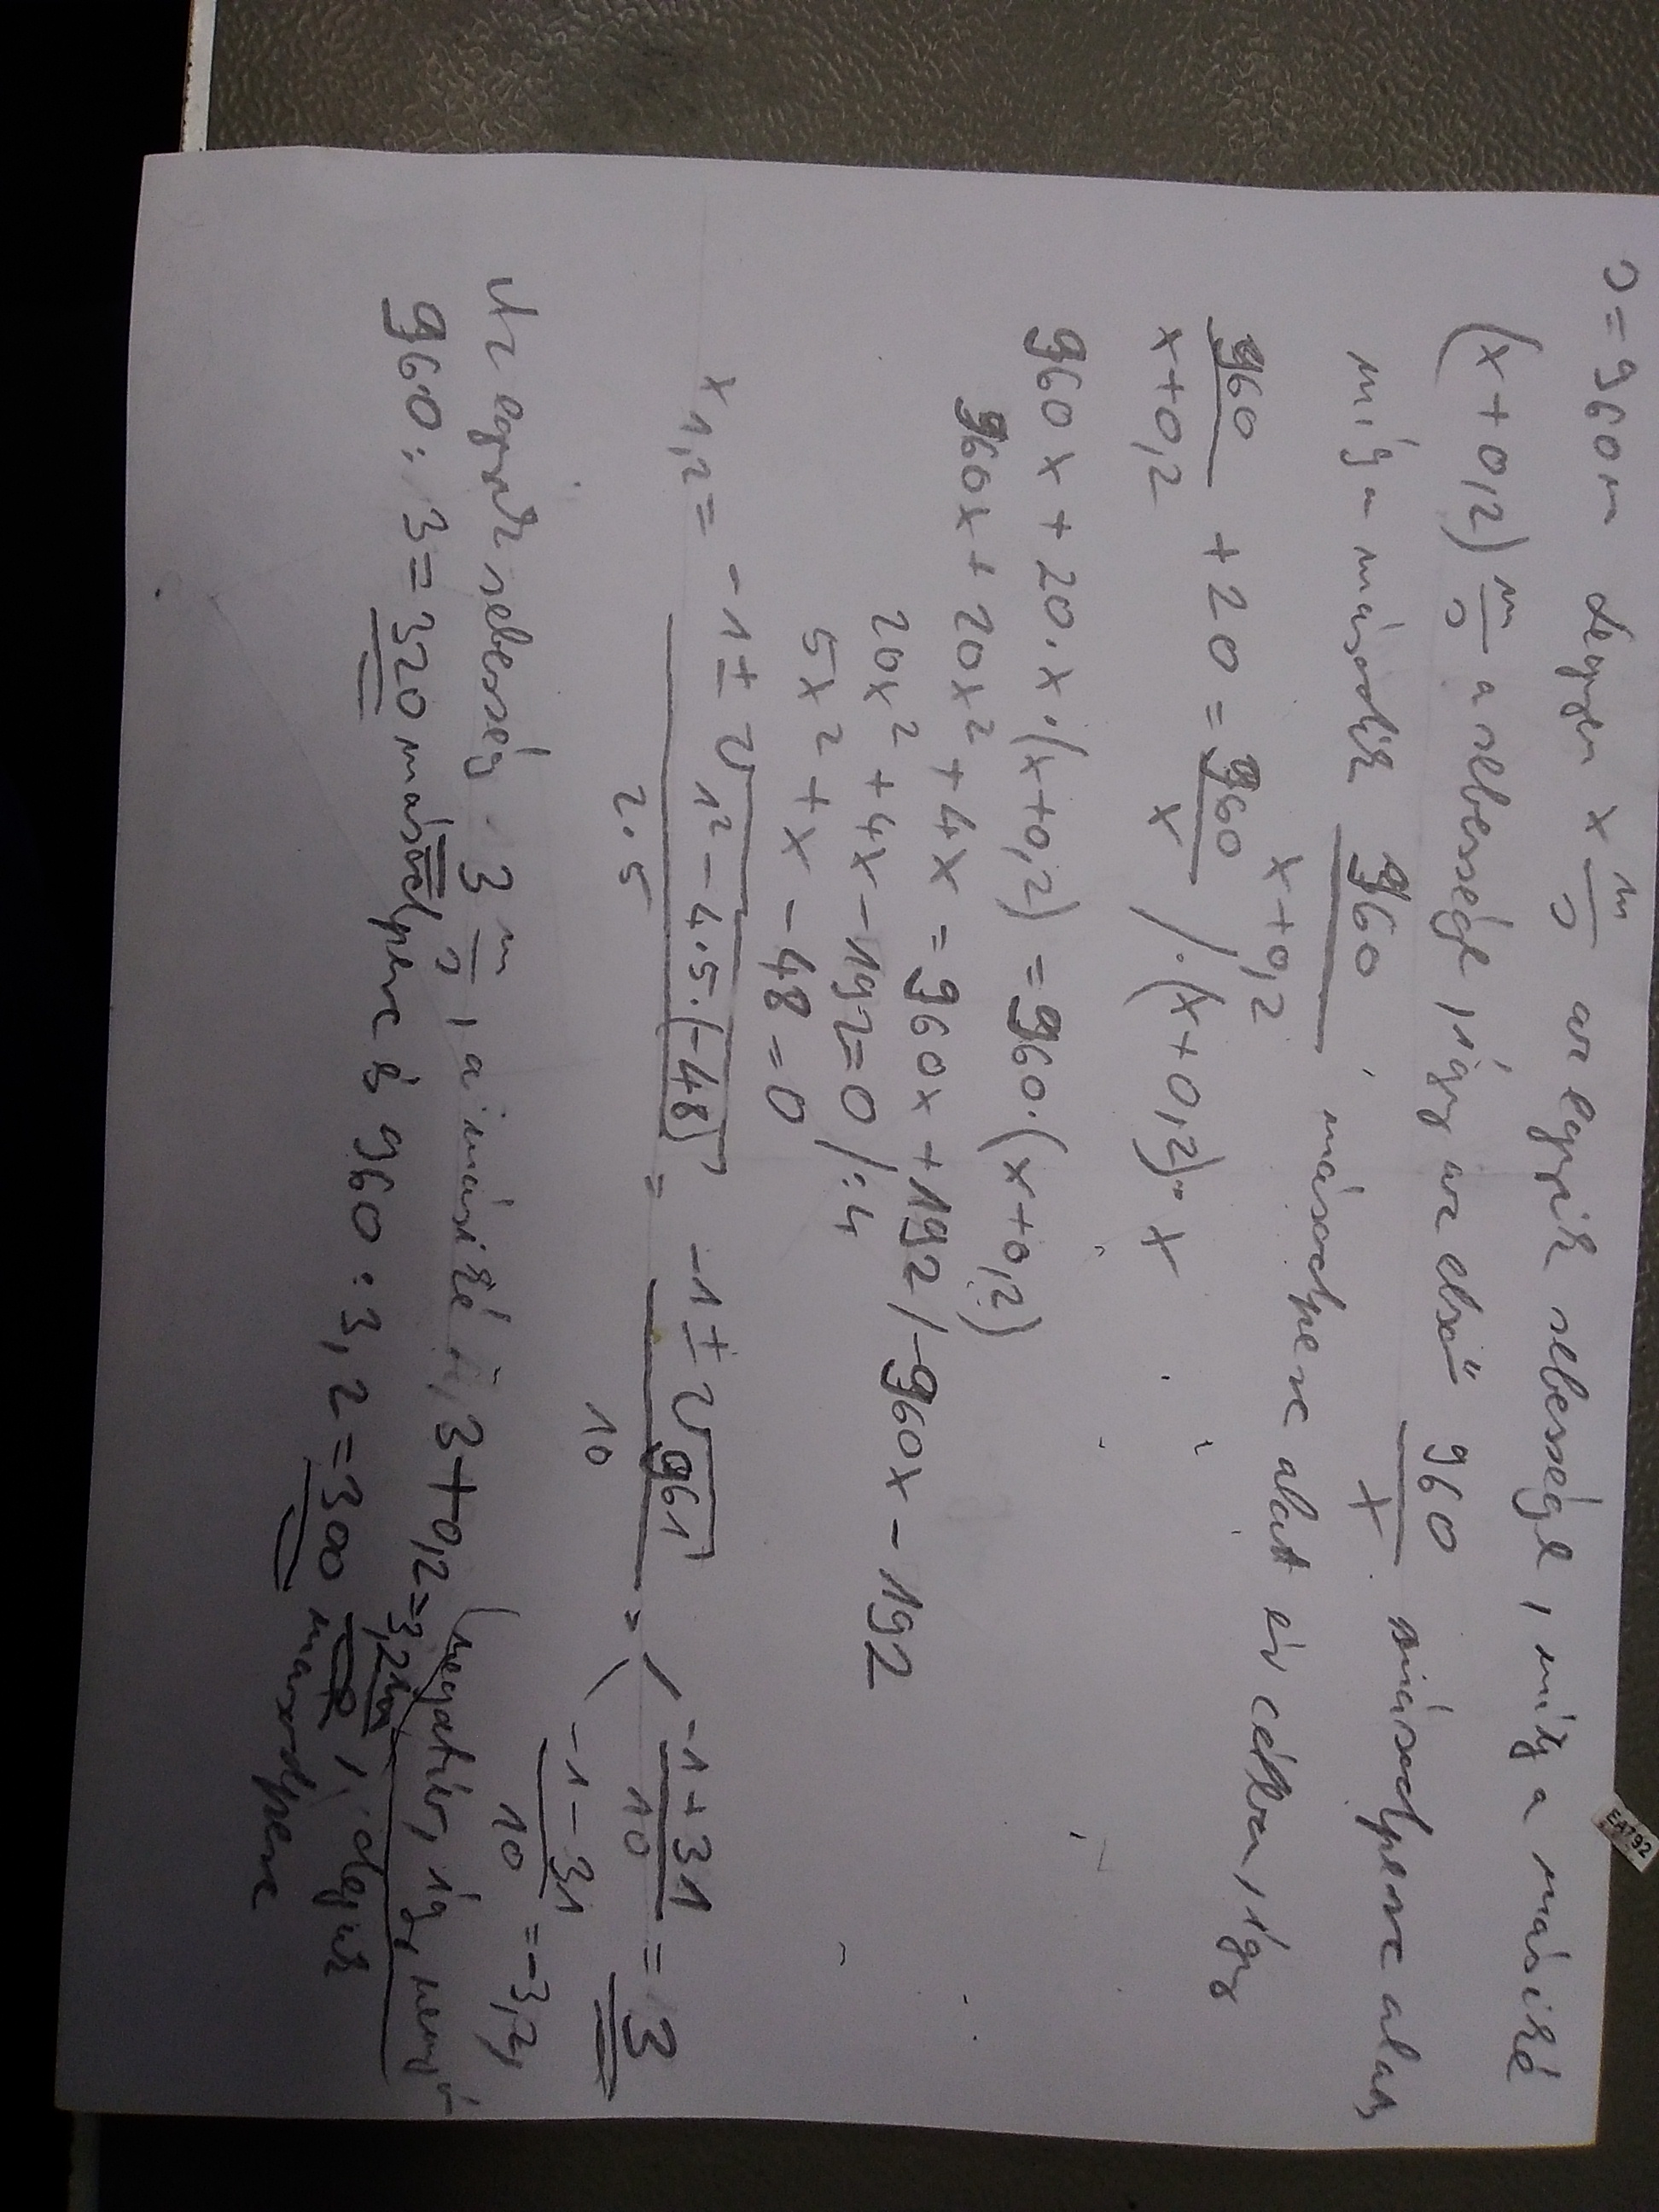 s = 960 m legyen x m/s az egyik sebessége, míg a másiké
(x+0,2) m/s a sebessége, így az első 960/x másodperc alatt,
míg a második 960/(x+0,2) másodperc alatt ér célba, így
960/(x+0,2) + 20 = 960/x /·(x+0,2)·x
960x + 20·x·(x+0,2) = 960·(x+0,2)
960x + 20x² + 4x = 960x + 192 /-960x - 192
20x² + 4x - 192 = 0 /:4
5x² + x - 48 = 0
x1,2 = (-1 ± √(1² - 4·5·(-48)))/(2·5) = (-1 ± √961)/10 = (-1+31)/10 = 3
(-1-31)/10 = -3,2,
(negatív, így nem jó
Az egyik sebesség 3 m/s, a másiké 3+0,2 = 3,2 m/s, idejük
960 : 3 = 320 másodperc és 960 : 3,2 = 300 másodperc
EA792